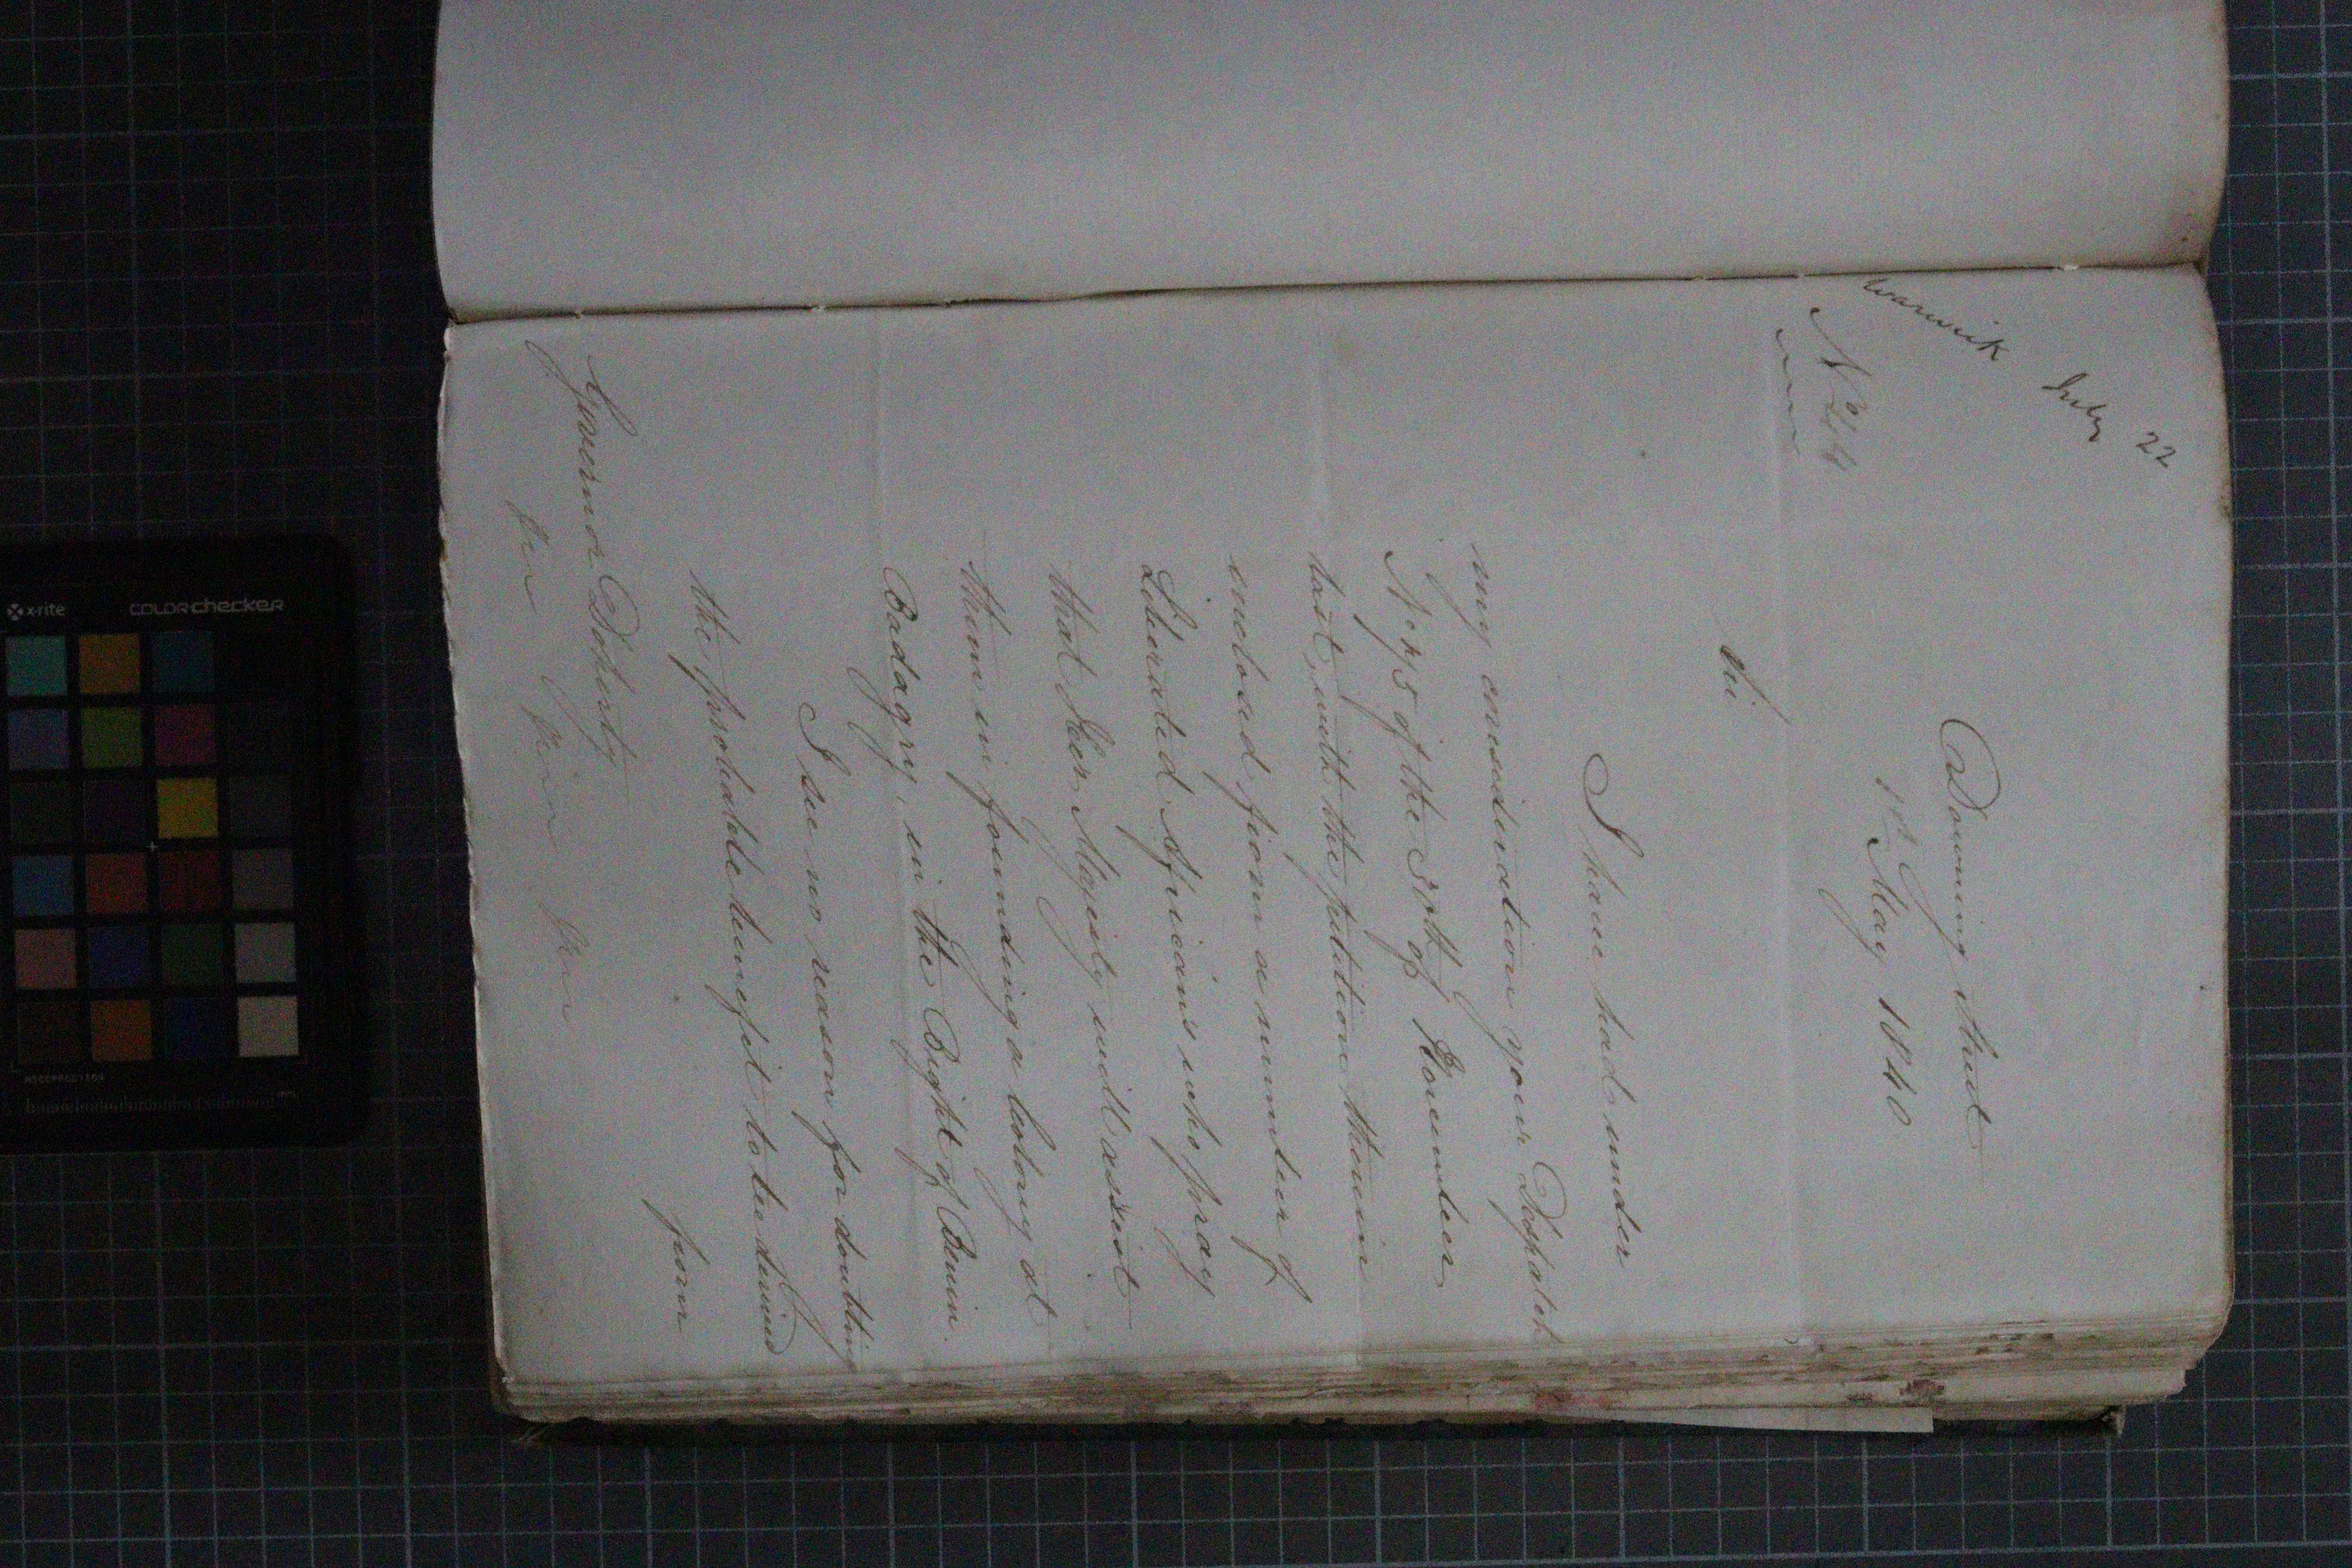 Warwick July 22
Nº 244
Downing Street
1st May 1840
Sir
I have had under
my consideration your Despatch
Nº 75 of the 30th of November
last, with the petition therein
enclosed from a number of
Liberated Africans who pray
that Her Majesty will assist
them in founding a Colony at
Badagry, in the Bight of Benin.
I see no reason for doubting
the probable benefit to be derived
from
Governor Doherty
&c &c &c
x-rite colorchecker